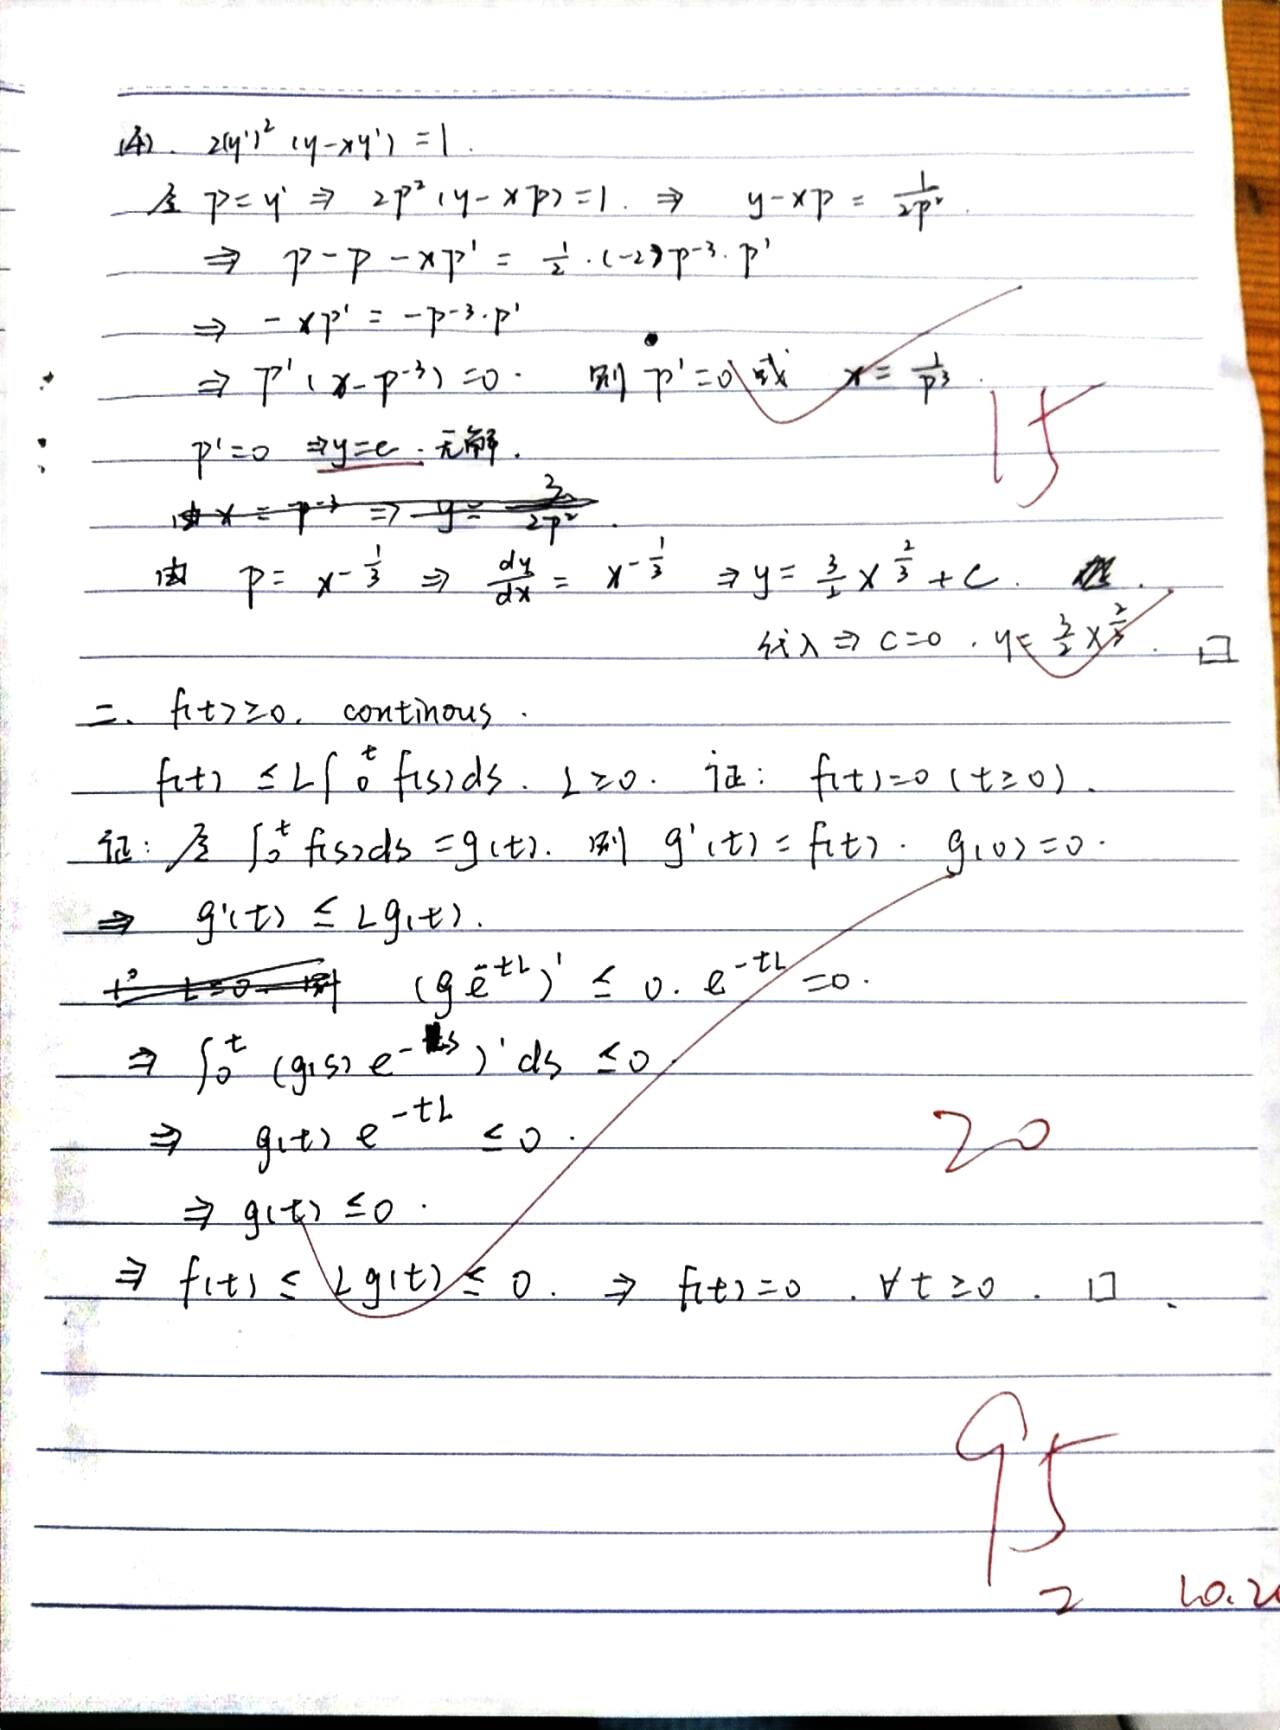 (4). 2(y')² (y-xy') = 1.
令 p=y' ⇒ 2p² (y-xp)=1. ⇒ y-xp = 1/2p².
⇒ p-p-xp' = 1/2·(-2)p⁻³·p'
⇒ -xp' = -p⁻³·p'
⇒ p'(x-p⁻³)=0. 则 p'=0 或 x = 1/p³.
15
p'=0 ⇒y=c. 无解.
由 x = p⁻³ ⇒ y = 3/2p².
由 p = x^(-1/3) ⇒ dy/dx = x^(-1/3) ⇒ y = 3/2 x^(2/3) + C.
代入 ⇒ C=0. y= 3/2 x^(2/3). □
二. f(t)≥0. continous.
f(t) ≤ L∫₀ᵗ f(s)ds. L≥0. 证: f(t)=0 (t≥0).
证: 令 ∫₀ᵗ f(s)ds = g(t). 则 g'(t) = f(t). g(0)=0.
⇒ g'(t) ≤ Lg(t).
L=0. 则 (g e^(-tL))' ≤ 0. e^(-tL) =0.
⇒ ∫₀ᵗ (g(s) e^(-Ls))' ds ≤0
⇒ g(t) e^(-tL) ≤ 0.
20
⇒ g(t) ≤0.
⇒ f(t) ≤ Lg(t) ≤ 0. ⇒ f(t)=0. ∀t≥0. □.
95
2 10.2